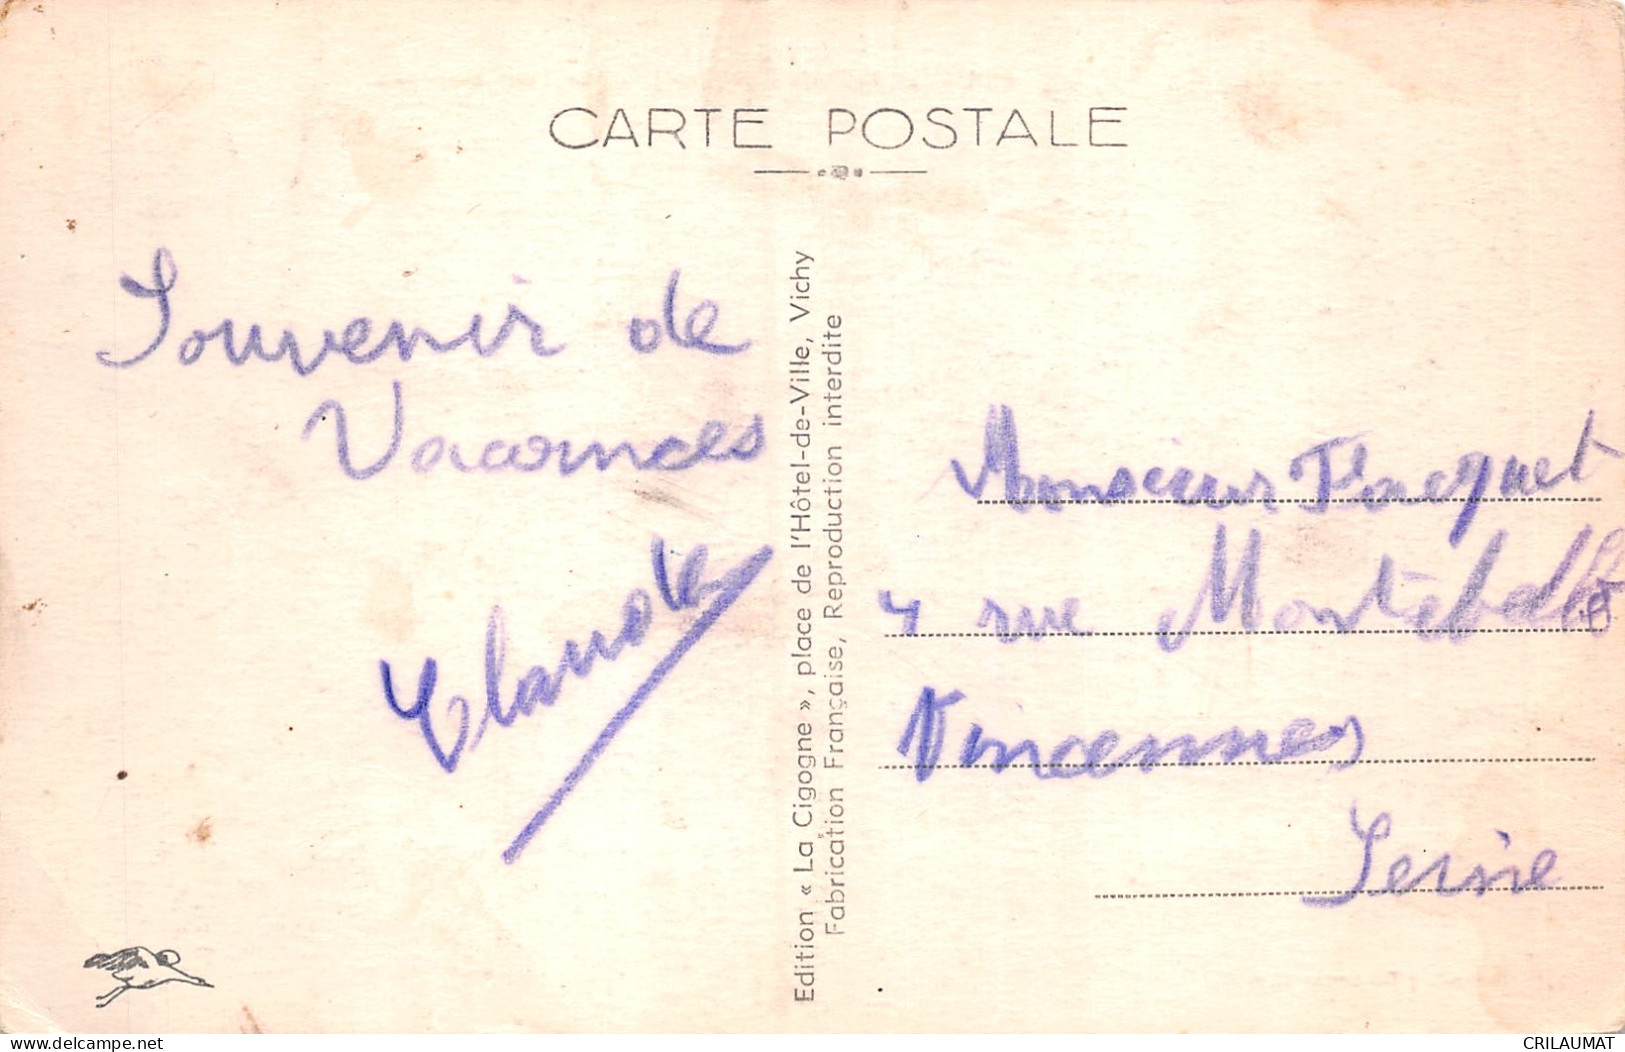 CARTE POSTALE
Souvenir de
Vacances
Claude
Edition « La Cigogne », place de l'Hôtel-de-Ville, Vichy
Fabrication Française, Reproduction interdite
Monsieur Flacquet
4 rue Montebello
Vincennes
Seine
www.delcampe.net
CRILAUMAT